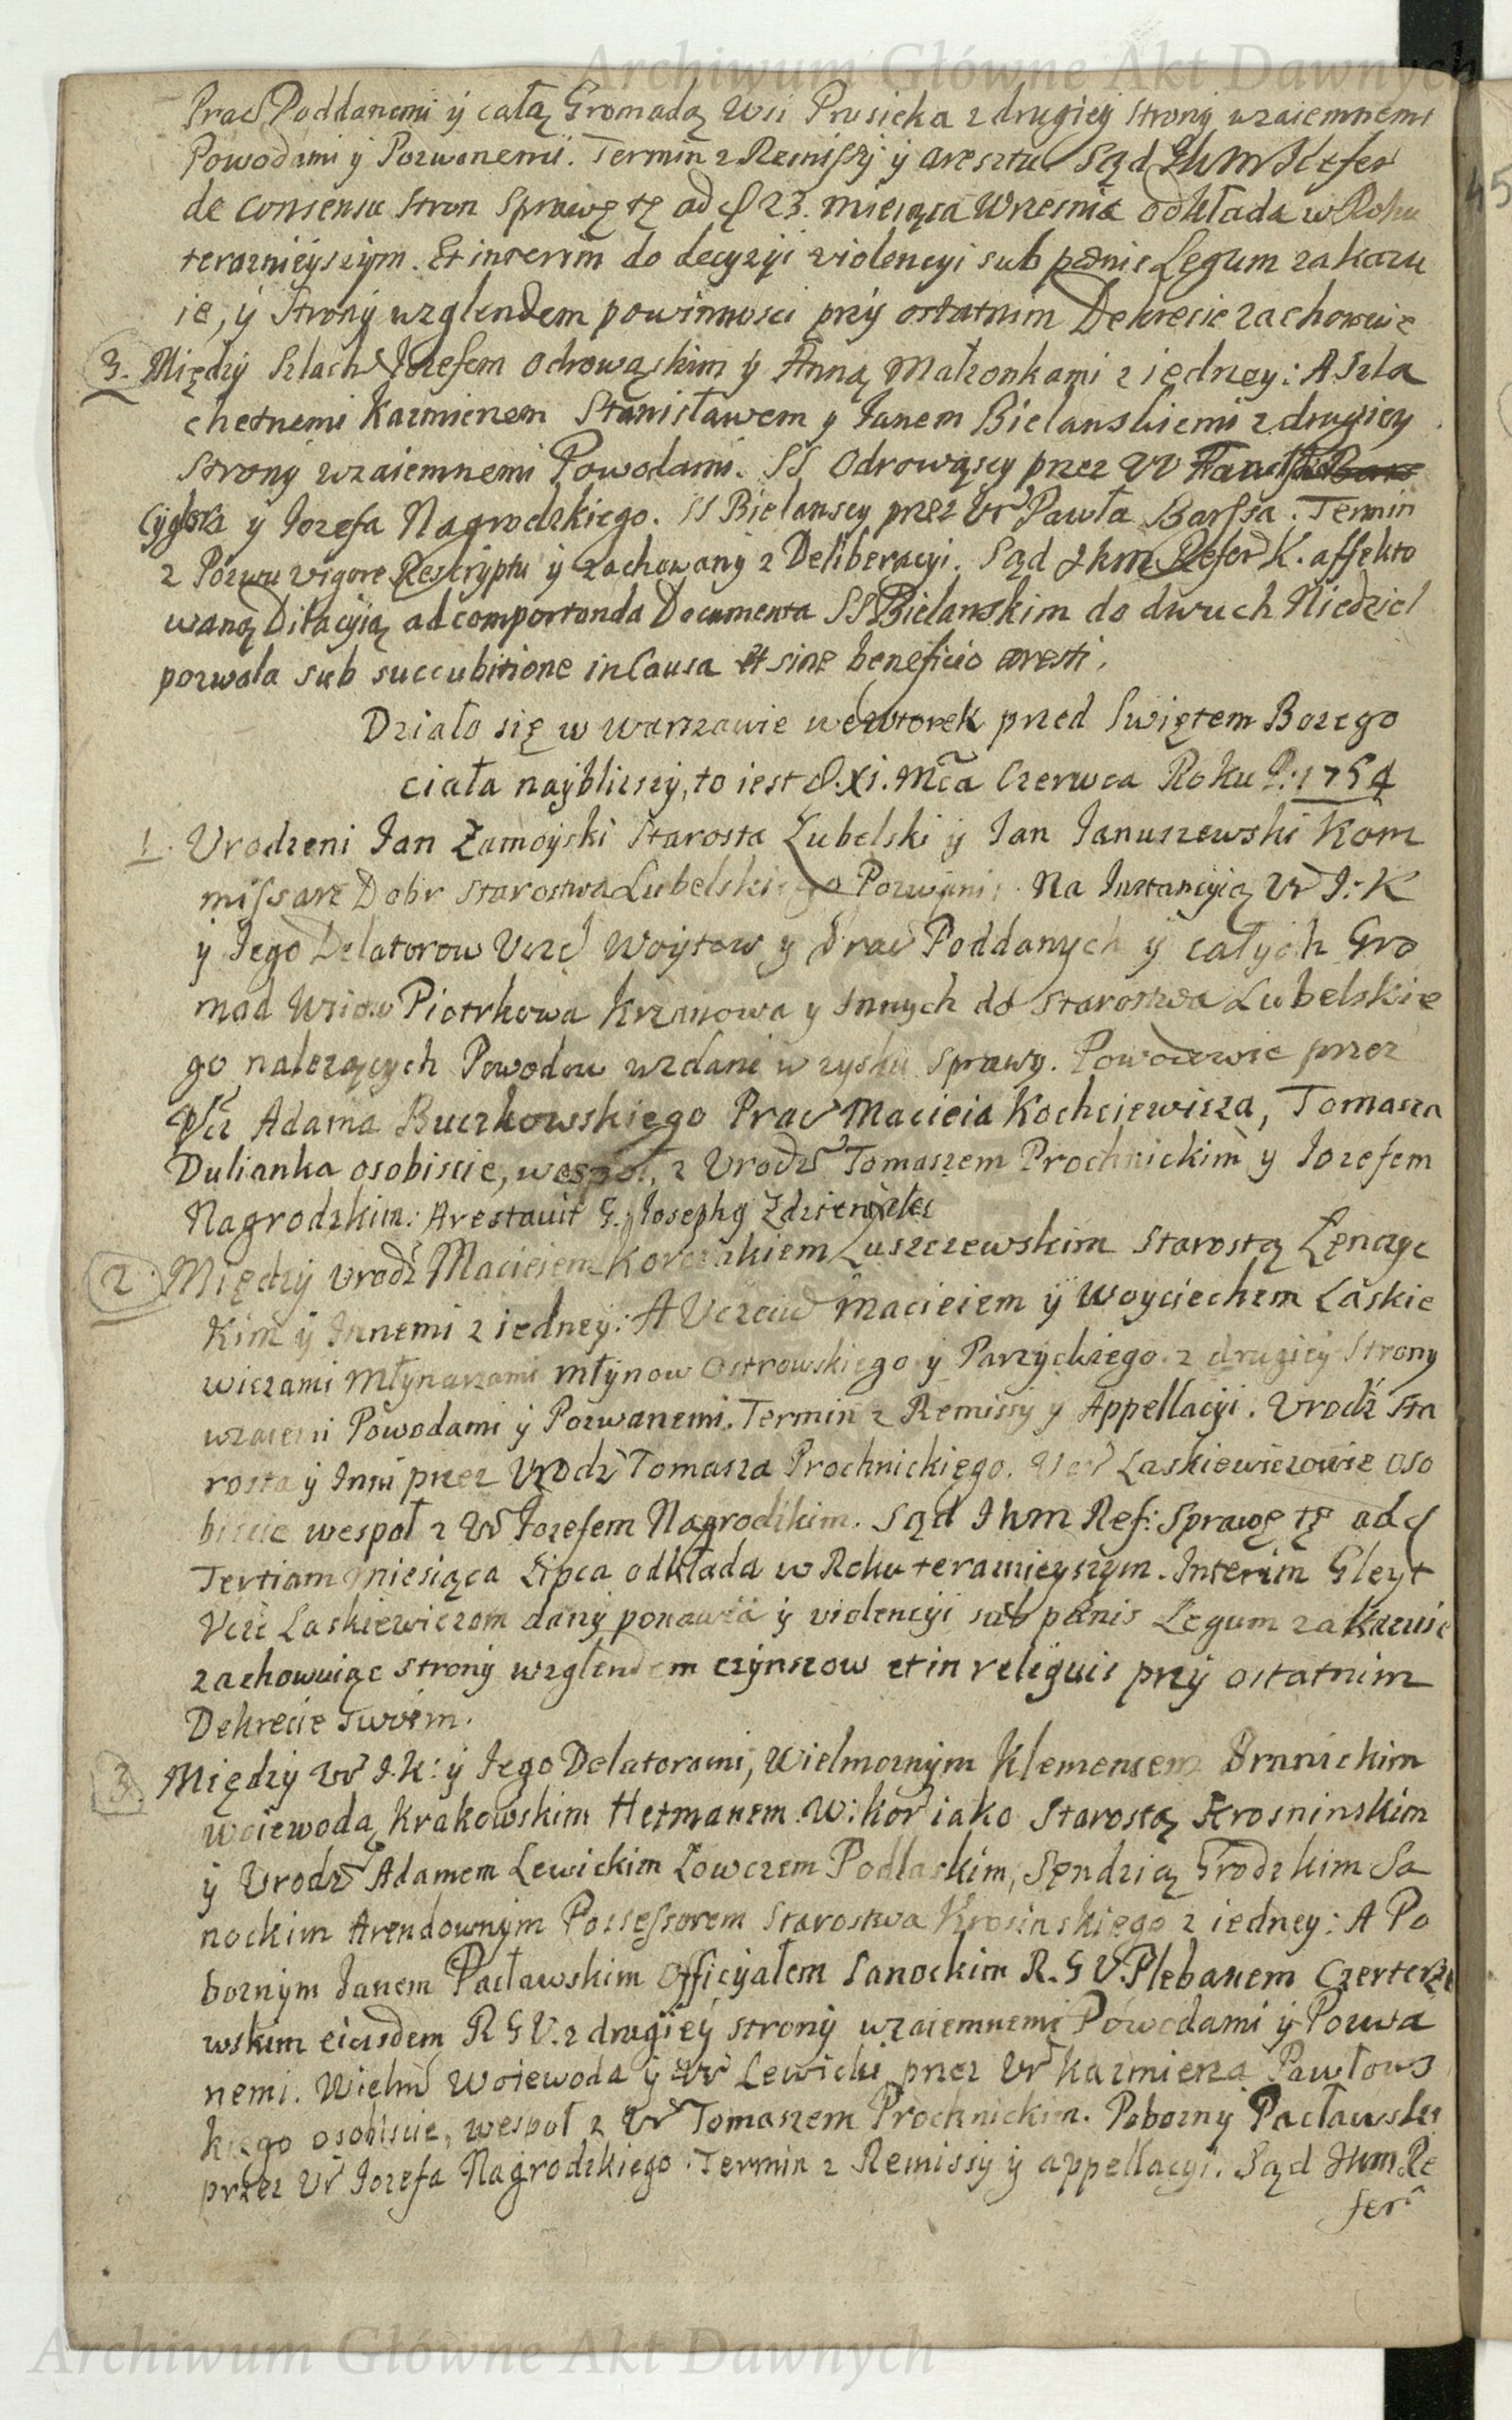 Archiwum Główne Akt Dawnych
Prac Poddanemi ÿ całą Gromadą Wsi Prusieka z drugiey strony wzaiemnemi
Powodami ÿ Pozwanemi. Termin z Remissÿ ÿ aresztu Sąd JhM Refer
de consensu stron sprawę tę ad d 23. miesiąca Wrzesnia odkłada w Roku
teraznieÿszÿm. Et interim do decÿzÿi violencÿi sub pænis Legum zakazu
ie, ÿ stronÿ wzglendem powinnosci przÿ ostatnim Dekrecie zachowuie
3. Międzÿ Szlach Jozefem Odrowąskim ÿ Anną Małzonkami z iedney: A Szla
chetnemi Kazmierzem Stanisławem y Janem Bielanskiemi z drugiey
strony wzaiemnemi Powodami. SS Odrowąscy przez Ur
Cyglera ÿ Jozefa Nagrodzkiego. SS Bielanscy przez Ur Pawła Barssa. Termin
z Pozwu vigore Rescryptu ÿ zachowanÿ z Deliberacyi. Sąd Jhm Refer K. affekto
waną Dilacÿią ad comportanda Documenta SS Bielanskim do dwuch Niedziel
pozwala sub succubitione in Causa et sine beneficio aresti.
Działo się w Warszawie we wtorek przed Swiętem Bozego
ciała naÿblizszÿ, to iest d. XI. Mca Czerwca Roku P. 1754
1. Urodzeni Jan Zamoÿski Starosta Lubelski ÿ Jan Januszewski Kom
missarz Dobr Starostwa Lubelskiego Pozwani. Na Instancÿią Ur J: K
ÿ Jego Delatorow Uczc Woytow y Prac Poddanych ÿ całych Gro
mad Wsiow Piotrkowa Krzanowa y Innych do Starostwa Lubelskie
go nalezących Powodow wzdani w zysku sprawy. Powodowie przez
Ucz Adama Buczkowskiego Prac Macieia Kochciewicza, Tomasza
Dulianka osobiscie, wespoł z Urodz Tomaszem Prochnickim y Jozefem
Nagrodzkim: Arestavit G. Josephy Zdzienicki
2. Międzÿ Urodz Macieiem Korczakiem Luszczewskim Starostą Lęnczÿc
kim ÿ Innemi z iedneÿ: A Uczciw Macieiem ÿ Woyciechem Laskie
wiczami Młÿnarzami młÿnow Ostrowskiego y Parzyckiego z drugiey Strony
wzaiemni Powodami ÿ Pozwanemi. Termin z Remissy y Appellacyi. Urodz Sta
rosta ÿ Inni przez Urodz Tomasza Prochnickiego. Ucz Laskiewiczowie oso
biscie wespoł z Ur Jozefem Nagrodzkim. Sąd Jhm Ref: sprawę tę ad d
Tertiam miesiąca Lipca odkłada w Roku teraznieyszym. Interim Gleyt
Uczc Laskiewiczom danÿ ponawia ÿ violencÿi sub pænis Legum zakazuie
zachowuiąc stronÿ wzglendem czÿnszow et in reliquis przÿ ostatnim
Dekrecie swoim.
3. Międzÿ Ur J.K: ÿ Jego Delatorami, Wielmoznÿm Klemensem Branickim
woiewodą Krakowskim Hetmanem W: Kor iako Starostą Krosninskim
ÿ Urodz Adamem Lewickim Łowczem Podlaskim, Sęndzią Grodzkim Sa
nockim Arendownÿm Possessorem Starostwa Krosinskiego z iedney: A Po
boznÿm Janem Pacławskim Officÿałem Sanockim R. G U. Plebanem Czertezo
wskim eiusdem R G U. z drugieÿ stronÿ wzaiemnemi Powodami ÿ Pozwa
nemi. Wielm Woiewoda ÿ Ur Lewicki przez Ur Kazmierza Pawłows
kiego osobiscie, wespoł z Ur Tomaszem Prochnickim. Pobozny Pacławski
przez Ur Jozefa Nagrodzkiego. Termin z Remissÿ ÿ appellacÿi. Sąd Jhm Re
fer
Archiwum Główne Akt Dawnych